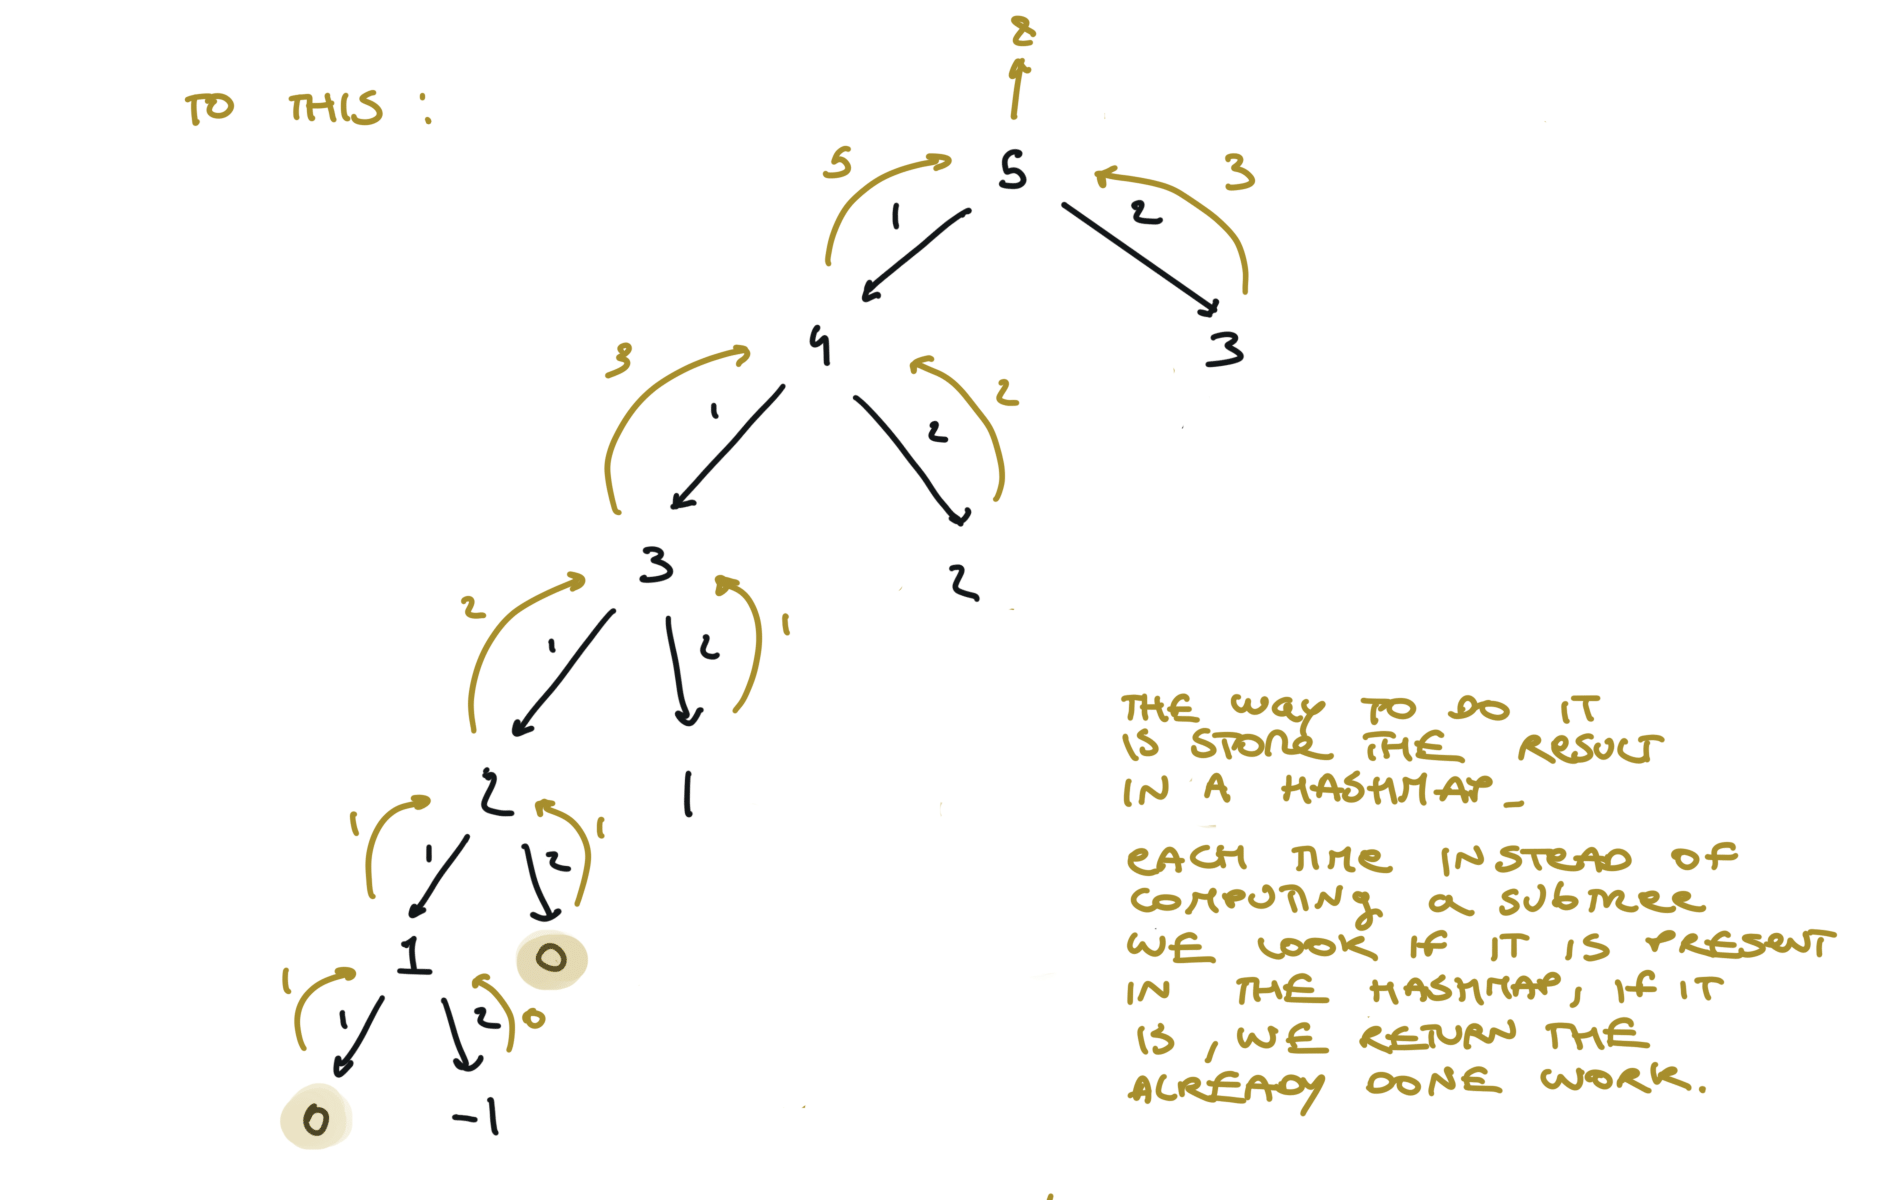 8
TO THIS :
5
5
3
1
2
4
3
3
1
2
2
3
2
2
1
2
1
2
1
1
1
2
1
1
0
1
1
2
0
0
-1
THE WAY TO DO IT
IS STORE THE RESULT
IN A HASHMAP_
EACH TIME INSTEAD OF
COMPUTING a SUBTREE
WE LOOK IF IT IS PRESENT
IN THE HASHMAP, IF IT
IS, WE RETURN THE
ALREADY DONE WORK.